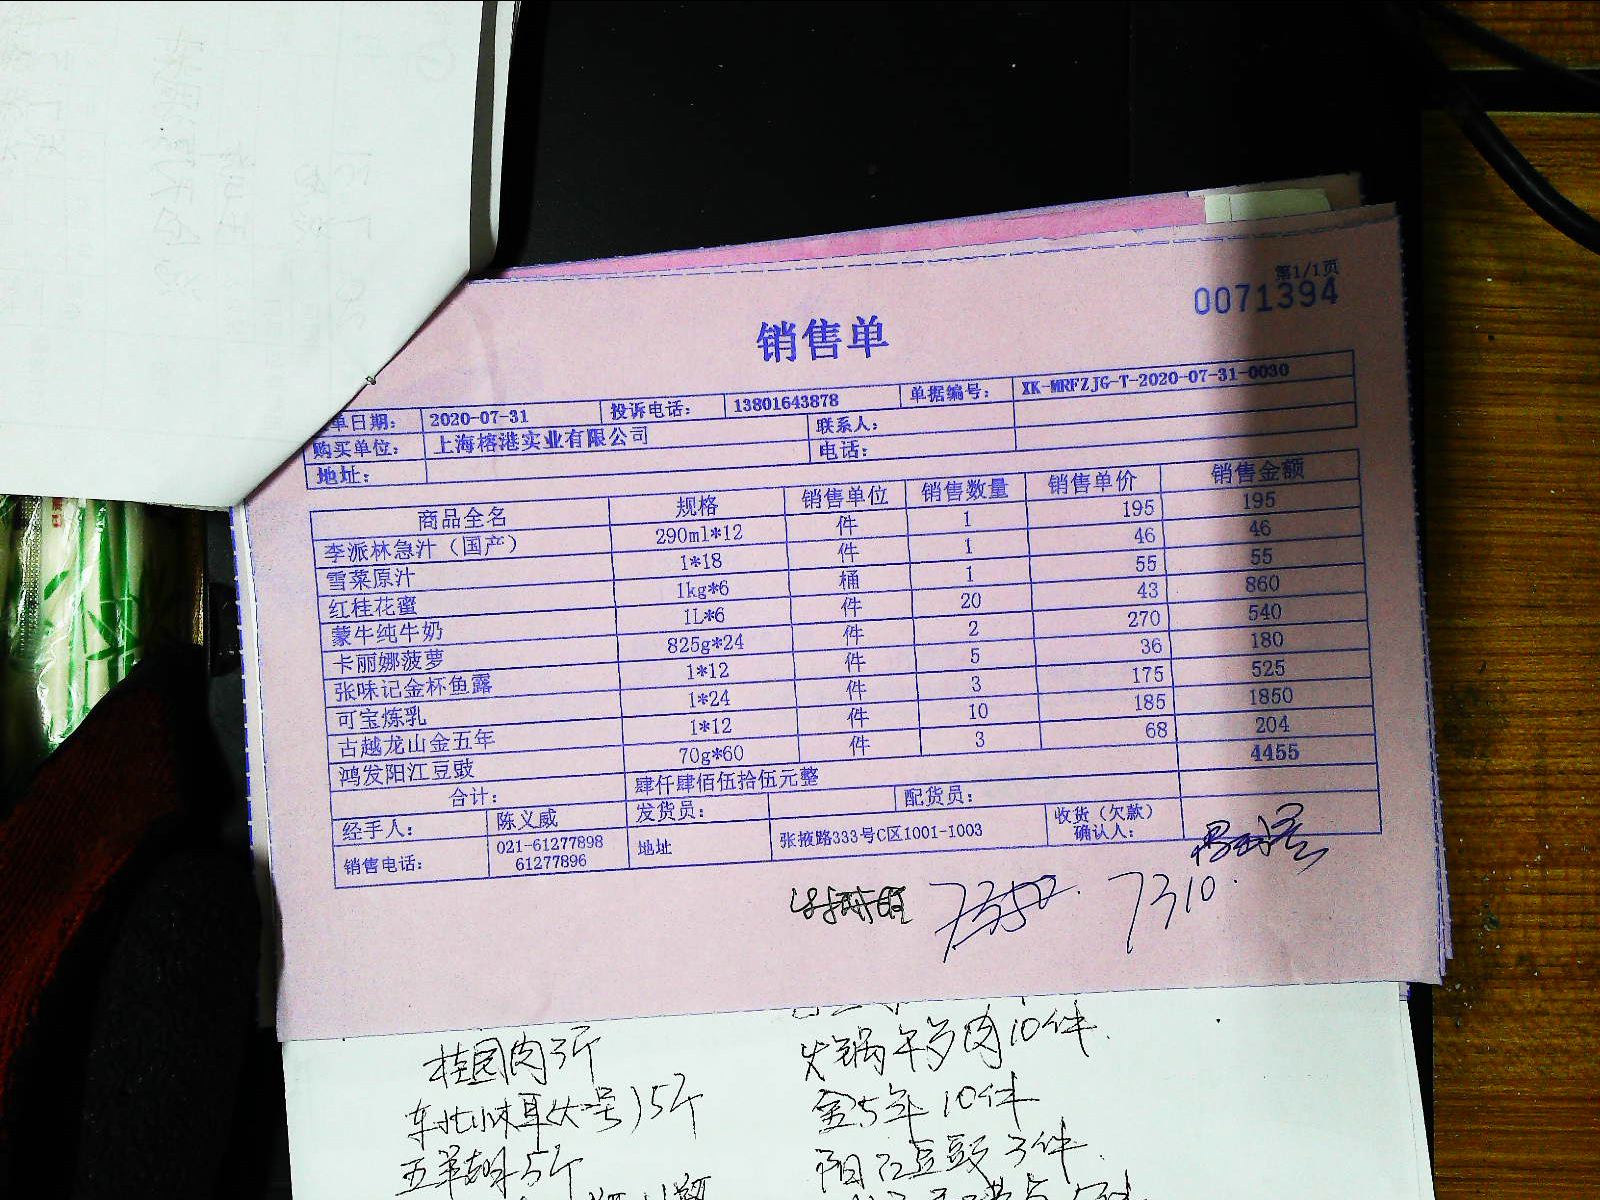 第1/1页
0071394
销售单
单日期： 2020-07-31 投诉电话： 13801643878 单据编号： XK-MRFZJG-T-2020-07-31-0030
购买单位： 上海榕港实业有限公司 联系人：
地址： 电话：
商品全名 规格 销售单位 销售数量 销售单价 销售金额
李派林急汁（国产） 290ml*12 件 1 195 195
雪菜原汁 1*18 件 1 46 46
红桂花蜜 1kg*6 桶 1 55 55
蒙牛纯牛奶 1L*6 件 20 43 860
卡丽娜菠萝 825g*24 件 2 270 540
张味记金杯鱼露 1*12 件 5 36 180
可宝炼乳 1*24 件 3 175 525
古越龙山金五年 1*12 件 10 185 1850
鸿发阳江豆豉 70g*60 件 3 68 204
合计： 肆仟肆佰伍拾伍元整 4455
经手人： 陈义威 发货员： 配货员： 收货（欠款）确认人：
销售电话： 021-61277898 61277896 地址 张掖路333号C区1001-1003
7310.
桂园肉3斤 火锅年多肉10件.
东北小木耳(大号)5斤 金5年10件
5斤 阳江豆豉3件.